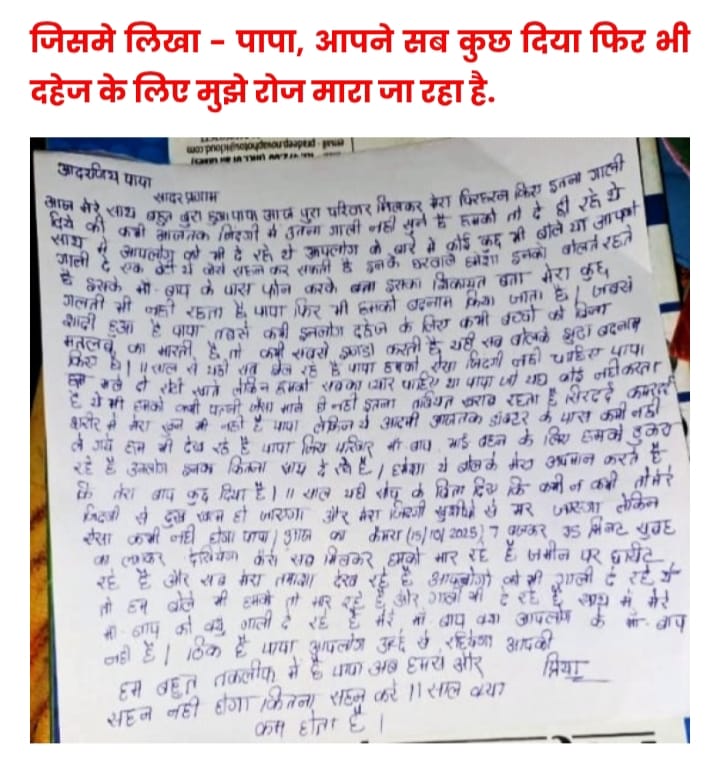 जिसमे लिखा – पापा, आपने सब कुछ दिया फिर भी
दहेज के लिए मुझे रोज मारा जा रहा है.
आदरणिय पापा
सादर प्रणाम
आज मेरे साथ बहुत बुरा हुआ पापा आज पुरा परिवार मिलकर मेरा किए इतना गाली
दिये की कभी आजतक जिंदगी में इतना गाली नही सुने है हमको तो दे ही रहे थे
साथ में आपलोग को भी दे रहे थे आपलोग के बारे में कोई कुछ भी बोले या आपको
गाली दे सहन कर सकती है इनके घरवाले हमेशा इनको बोलते रहते
है इसके माँ-बाप के पास फोन करके बता इसका शिकायत बता मेरा कुछ
गलती भी नही रहता है पापा फिर भी हमको बदनाम किया जाता है। जबसे
शादी हुआ है पापा तबसे कभी इनलोग दहेज के लिए कभी बच्चो को बिना
मतलब का मारती है, तो कभी सबसे झगड़ा करती है यही सब बोलके झुठा बदनाम
किए है। 11 साल से यही सब झेल रहे है पापा हमको ऐसा जिंदगी नही चाहिए पापा
हम भले दो रोटी खाते लेकिन हमको सबका प्यार चाहिए था पापा जो यहा कोई नही करता
है ये भी हमको कभी पत्नी जैसा माने ही नही इतना तबियत खराब रहता है सिरदर्द कमरदर्द
शरीर में मेरा खुन भी नही है पापा लेकिन ये आदमी आजतक डॉक्टर के पास कभी नही
ले गये हम भी देख रहे है पापा जिस परिवार माँ बाप भाई बहन के लिए हमको ठुकरा
रहे है उनलोग इनका कितना साथ दे रहे है। हमेशा ये बोलके मेरा अपमान करते है
कि तेरा बाप कुछ दिया है। 11 साल यही सोच के बिता दिए कि कभी न कभी तो मेरे
जिंदगी से दुख खत्म हो जाएगा और मेरा जिंदगी लेकिन
ऐसा कभी नही होगा पापा। आज का कैमरा (15/10/2025) 7 बजकर 35 मिनट सुबह
का देखियेगा कैसे सब मिलकर हमको मार रहे है जमीन पर घसीट
रहे है और सब मेरा तमाशा देख रहे है आपलोगो को भी गाली दे रहे थे
तो हम बोले भी हमको तो मार रहे है और गाली भी दे रहे है साथ में मेरे
माँ-बाप को क्यु गाली दे रहे है मेरे माँ-बाप क्या आपलोग के माँ-बाप
नही है। ठिक है पापा आपलोग अच्छे से रहियेगा आपकी
प्रिया
हम बहुत तकलीफ में है पापा अब हमसे और
सहन नही होगा कितना सहन करे 11 साल क्या
कम होता है।